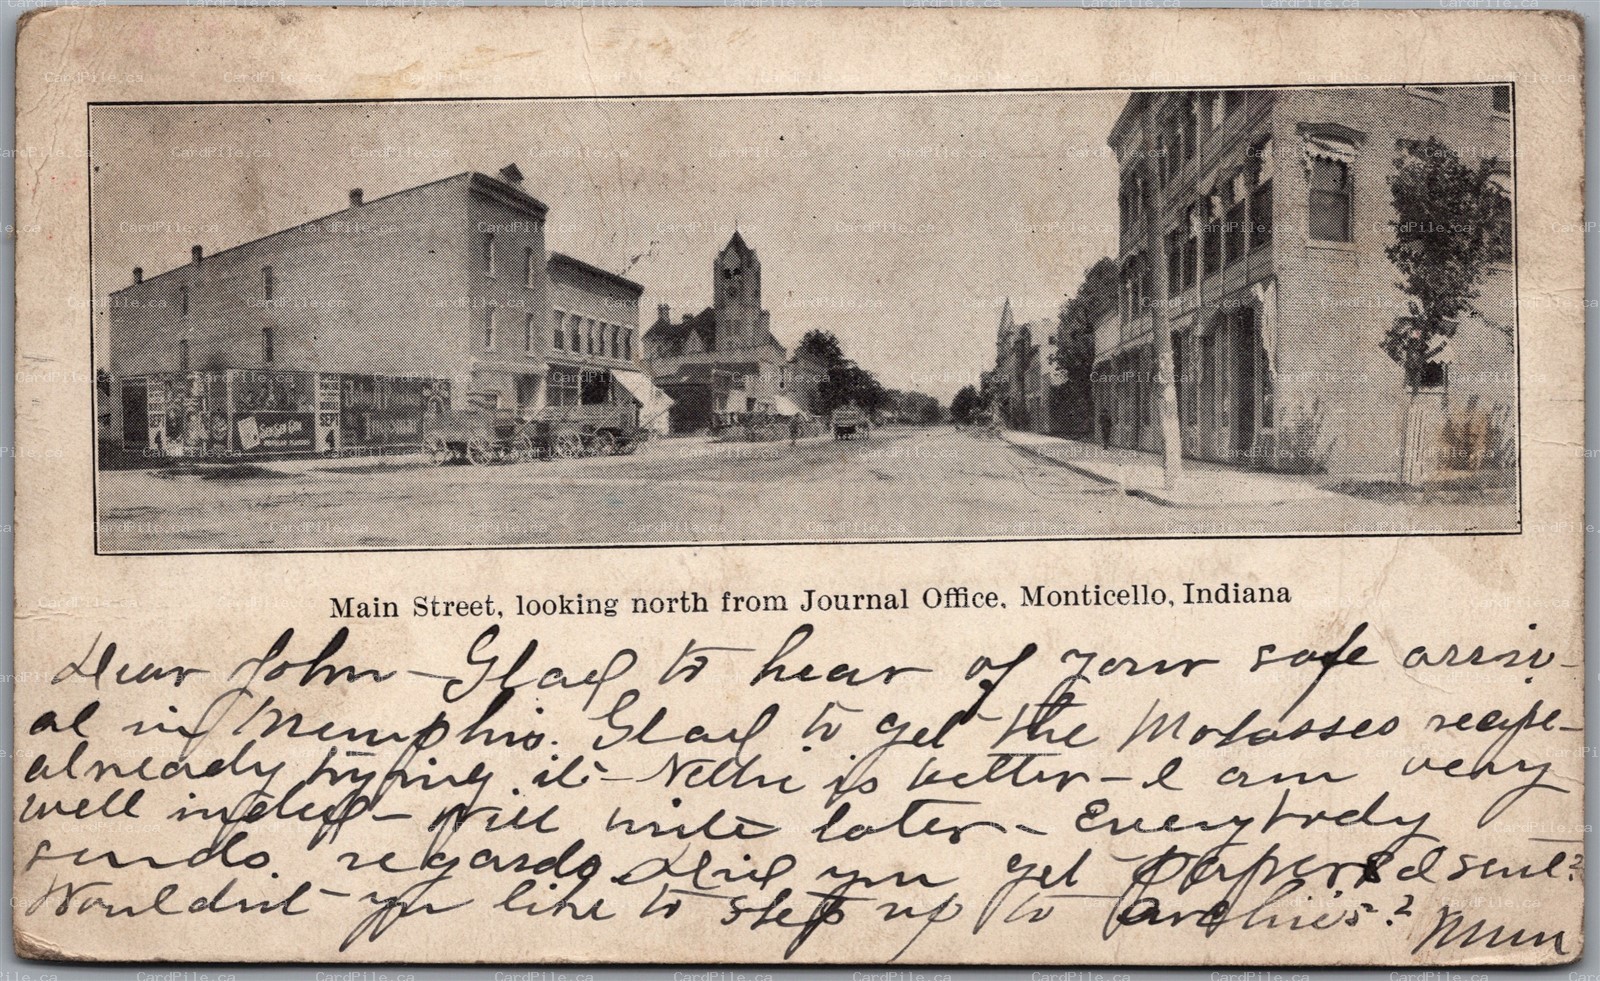 SEPT 4
SEN-SEN GUM
SEPT 4
Main Street, looking north from Journal Office, Monticello, Indiana
Dear John – Glad to hear of your safe arriv-
al in Memphis. Glad to get the Molasses recipe –
already trying it – Nellie is better – I am very
well indeed – Will write later – Everybody
sends regards. Did you get papers I sent?
Wouldnt you like to step up to Archies?
CardPile.ca